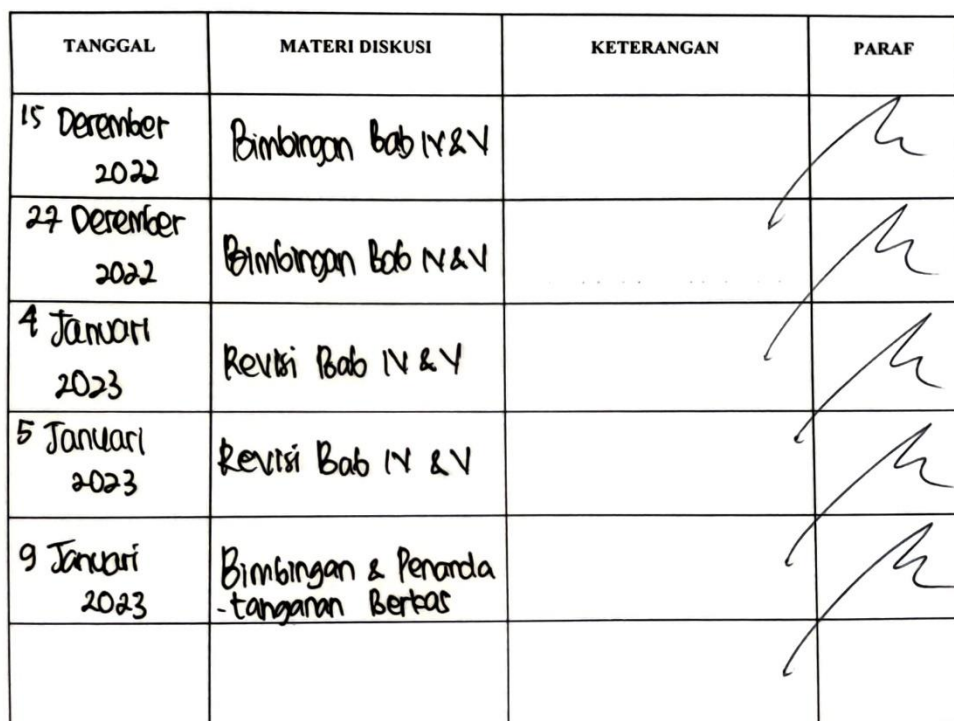 TANGGAL MATERI DISKUSI KETERANGAN PARAF
15 Desember
2022
Bimbingan Bab IV & V
27 Desember
2022
Bimbingan Bab IV & V
4 Januari
2023
Revisi Bab IV & V
5 Januari
2023
Revisi Bab IV & V
9 Januari
2023
Bimbingan & Penanda
-tanganan Berkas